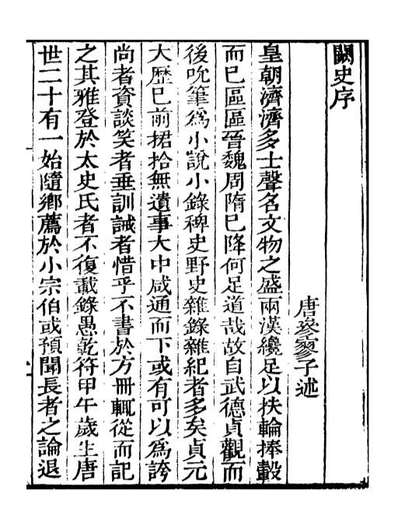 闕史序
唐參寥子述
皇朝濟濟多士聲名文物之盛兩漢纔足以扶輪捧轂
而已區區晉魏周隋已降何足道哉故自武德貞觀而
後吮筆爲小說小錄稗史野史雜錄雜紀者多矣貞元
大歷已前捃拾無遺事大中咸通而下或有可以爲誇
尚者資談笑者垂訓誡者惜乎不書於方冊輒從而記
之其雅登於太史氏者不復載錄愚乾符甲午歲生唐
世二十有一始隨鄉薦於小宗伯或預聞長者之論退